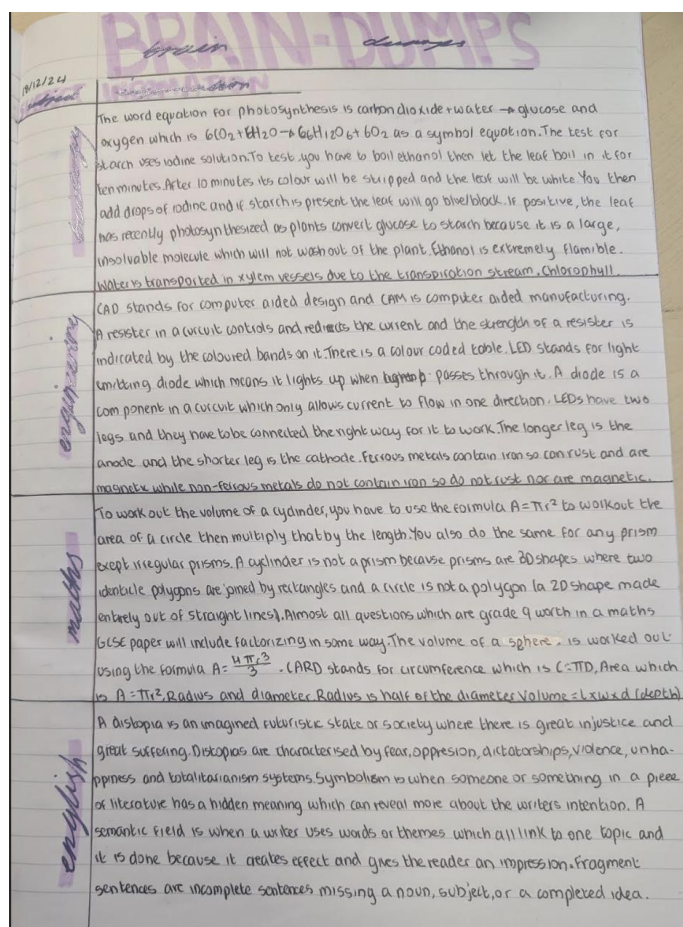 BRAIN-DUMPS
brain dumps
18/12/24
INFORMATION
The word equation for photosynthesis is carbon dioxide + water → glucose and
oxygen which is 6CO2 + 6H2O → C6H12O6 + 6O2 as a symbol equation. The test for
starch uses iodine solution. To test you have to boil ethanol then let the leaf boil in it for
ten minutes. After 10 minutes its colour will be stripped and the leaf will be white. You then
add drops of iodine and if starch is present the leaf will go blue/black. If positive, the leaf
has recently photosynthesized as plants convert glucose to starch because it is a large,
insolvable molecule which will not wash out of the plant. Ethanol is extremely flamible.
Water is transported in xylem vessels due to the transpiration stream. Chlorophyll.
engineering
CAD stands for computer aided design and CAM is computer aided manufacturing.
A resister in a curcuit controls and redirects the current and the strength of a resister is
indicated by the coloured bands on it. There is a colour coded table. LED stands for light
emitting diode which means it lights up when passes through it. A diode is a
component in a curcuit which only allows current to flow in one direction. LEDs have two
legs and they have to be connected the right way for it to work. The longer leg is the
anode and the shorter leg is the cathode. Ferrous metals contain iron so can rust and are
magnetic while non-ferrous metals do not contain iron so do not rust nor are magnetic.
maths
To work out the volume of a cylinder, you have to use the formula A = πr² to workout the
area of a circle then multiply that by the length. You also do the same for any prism
exept irregular prisms. A cyclinder is not a prism because prisms are 3D shapes where two
identicle polygons are joined by rectangles and a circle is not a polygon (a 2D shape made
entirely out of straight lines). Almost all questions which are grade 9 worth in a maths
GCSE paper will include factorizing in some way. The volume of a sphere. is worked out
using the formula A = 4πr³/3 . CARD stands for circumference which is C = πD, Area which
is A = πr², Radius and diameter. Radius is half of the diameter. Volume = L x w x d (depth)
english
A distopia is an imagined futuristic state or society where there is great injustice and
great suffering. Distopias are characterised by fear, oppresion, dictatorships, violence, unha-
ppiness and totalitarianism systems. Symbolism is when someone or something in a piece
of literature has a hidden meaning which can reveal more about the writers intention. A
semantic field is when a writer uses words or themes which all link to one topic and
it is done because it creates effect and gives the reader an impression. Fragment
sentences are incomplete sentences missing a noun, subject, or a completed idea.